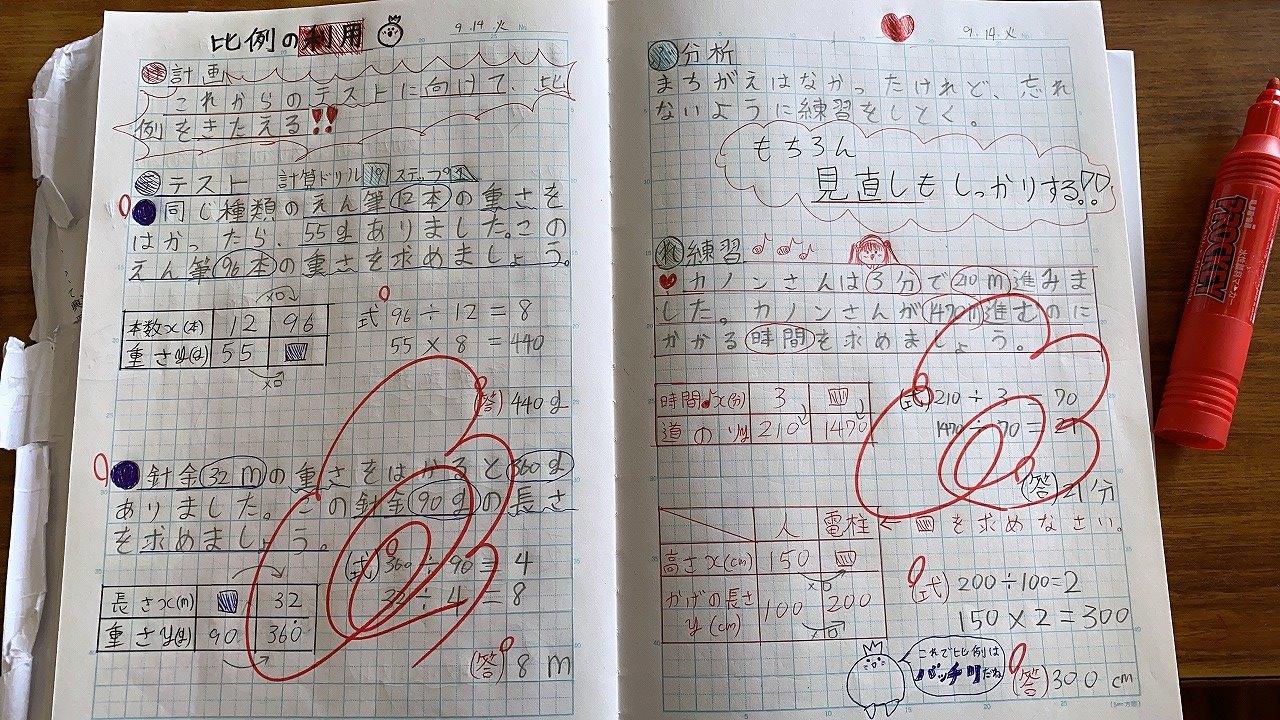 比例の利用
9.14.火
計画
これからのテストに向けて、比
例をきたえる!!
テスト 計算ドリル 19
同じ種類のえん筆12本の重さを
はかったら、55gありました。この
えん筆96本の重さを求めましょう。
本数x(本) 12 96
重さy(g) 55
式 96÷12=8
55×8=440
(答)440g
針金32mの重さをはかると360g
ありました。この針金90gの長さ
を求めましょう。
(式)360÷90=4
32÷4=8
長さx(m) 32
重さy(g) 90 360
(答)8m
9.14.火
分析
まちがえはなかったけれど、忘れ
ないように練習をしとく。
もちろん
見直しもしっかりする!?
れ 練習
カノンさんは3分で210m進みま
した。カノンさんが1470m進むのに
かかる時間を求めましょう。
時間x(分) 3
道のりy 210 1470
(式)210÷3=70
1470÷70=21
(答)21分
人 電柱 ← を求めなさい。
高さx(cm) 150
かげの長さy(cm) 100 200
(式)200÷100=2
150×2=300
これで比例は
バッチリだね
(答)300cm
uni
PROCKEY